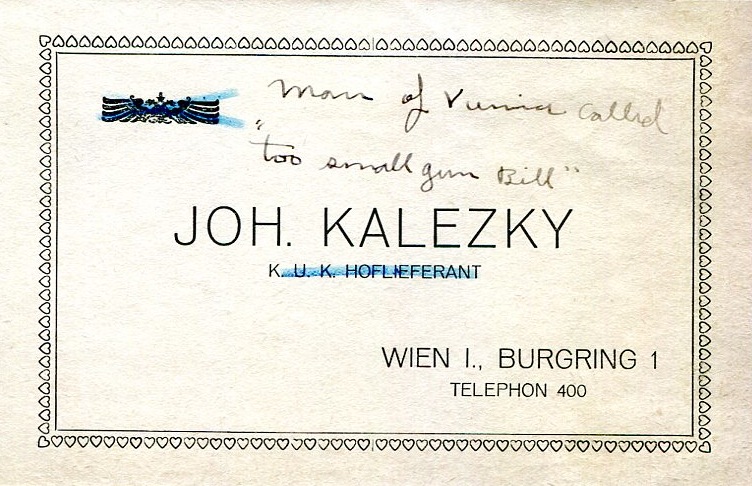 Man of Vienna called
"too small gun Bill"
JOH. KALEZKY
K. U. K. HOFLIEFERANT
WIEN I., BURGRING 1
TELEPHON 400